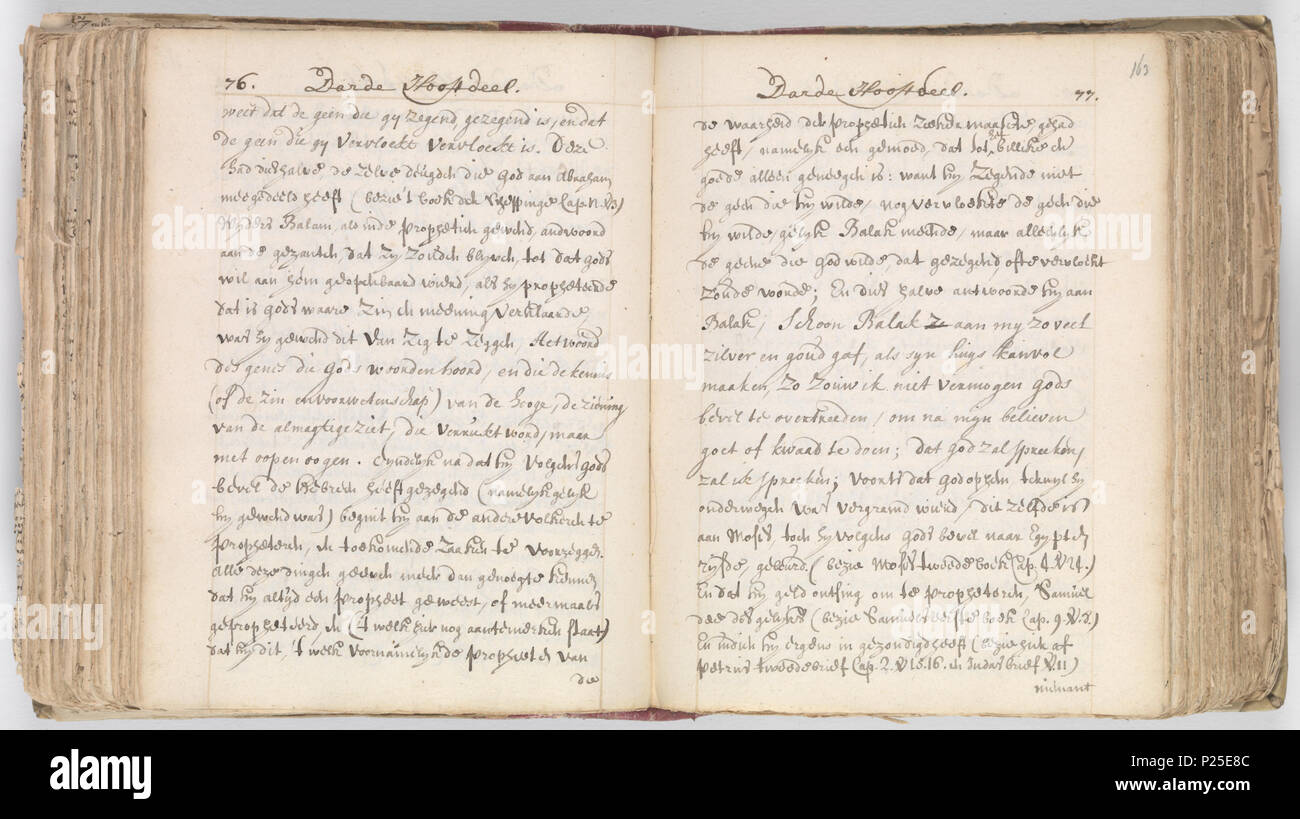 76. Darde Hooftdeel.
weet dat de geen die gy zegend, gezegend is, en dat
de geen die gy vervloekt vervloekt is. Deze
had dieshalve de zelve deugden die God aan Abraham
meegedeeld heeft (bezie 't boek der Scheppinge Cap. 12. V. 3)
Wyders Balam, als in de prophetien gewend, andwoord
aan de gezanten dat zy zouden blyven, tot dat Gods
wil aan hem geopenbaard wierd, als hy propheteerde
dat is Gods waare zin en meening verklaarde,
was hy gewend dit van zig te zeggen, Het woord
des genes die Gods woorden hoord, en die de kennis
(of de zin en voorwetenschap) van de hooge, de ziening
van de almagtige ziet, die verrukt word, maar
met oopen oogen. Eyndelyk na dat hy volgens Gods
bevel de Hebreen heeft gezegend (namelyk gelyk
hy gewend was) begint hy aan de andere volkeren te
propheteren, en toekomende zaaken te voorzeggen.
Alle deze dingen geeven meer dan genoeg te kennen
dat hy altyd een propheet geweest, of meermaals
gepropheteerd, en ('t welk hier nog aantemerken staat)
dat hy dit 't welk voornamelyk de propheeten van
die
163
Darde Hooftdeel. 77.
de waarheid der prophetien zeker maakte, gehad
heeft, namelyk een gemoed, dat tot het billike en
goede alleen geneegen is: want hy zegende niet
de geen die hy wilde, nog vervloekte de geen die
hy wilde, gelyk Balak meende, maar alleenlyk
de geene die God wilde, dat gezegend ofte vervlockt
zoude worde; En dies halve antwoorde hy aan
Balak; Schoon Balak aan my zo veel
zilver en goud gaf, als syn huys kan vol
maaken, zo zouw ik niet vermogen Gods
bevel te overtreeden, om na myn believen
goet of kwaad te doen; dat God zal spreeken,
zal ik spreeken; voorts dat God op hem terwyl hy
onderwegen was vergramd wierd, dit zelfde is
aan Moses toen hy volgens Gods bevel naar Egypten
rysde, gebeurd. (bezie Moses tweede boek Cap. 4. V. 24.)
En dat hy geld ontfing om te propheteren, Samuel
dee des gelyks (bezie Samuels eerste boek Cap. 9. V. 7. 8.)
En indien hy ergens in gezondigd heeft (bezie hier af
Petrus tweede brief Cap. 2. V. 15. 16. en Judas brief V. 11)
niemant
alamy
P25E8C
www.alamy.com